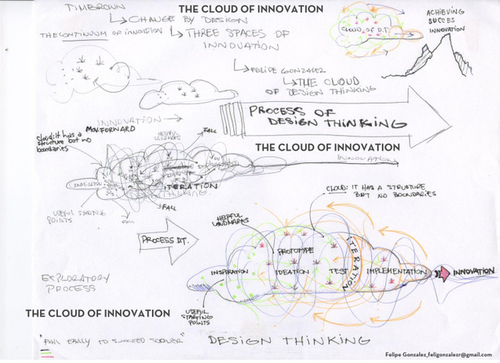 TIM BROWN
THE CLOUD OF INNOVATION
ACHIEVING
SUCCESS
INNOVATION
CHANGE BY DESIGN
THE CONTINUUM OF INNOVATION
THREE SPACES OF
INNOVATION
CLOUD OF D.T.
FELIPE GONZALEZ
THE CLOUD
OF DESIGN THINKING
INNOVATION
PROCESS OF
DESIGN THINKING
MOVFORWARD
HELPFUL
LANDMARKS
FALL
cloud: it has a
structure but no
boundaries
THE CLOUD OF INNOVATION
INNOVATION
ITERATION
FALL
USEFUL STARTING
POINTS
CLOUD: IT HAS A STRUCTURE
BUT NO BOUNDARIES
HELPFUL
LANDMARKS
PROCESS D.T.
PROTOTYPE
ITERATION
INSPIRATION
IDEATION
TEST
IMPLEMENTATION
INNOVATION
EXPLORATORY
PROCESS
USEFUL
STARTING
POINTS
THE CLOUD OF INNOVATION
"FAIL EARLY TO SUCCEED SOONER"
DESIGN THINKING
Felipe Gonzalez_feligonzalezr@gmail.com